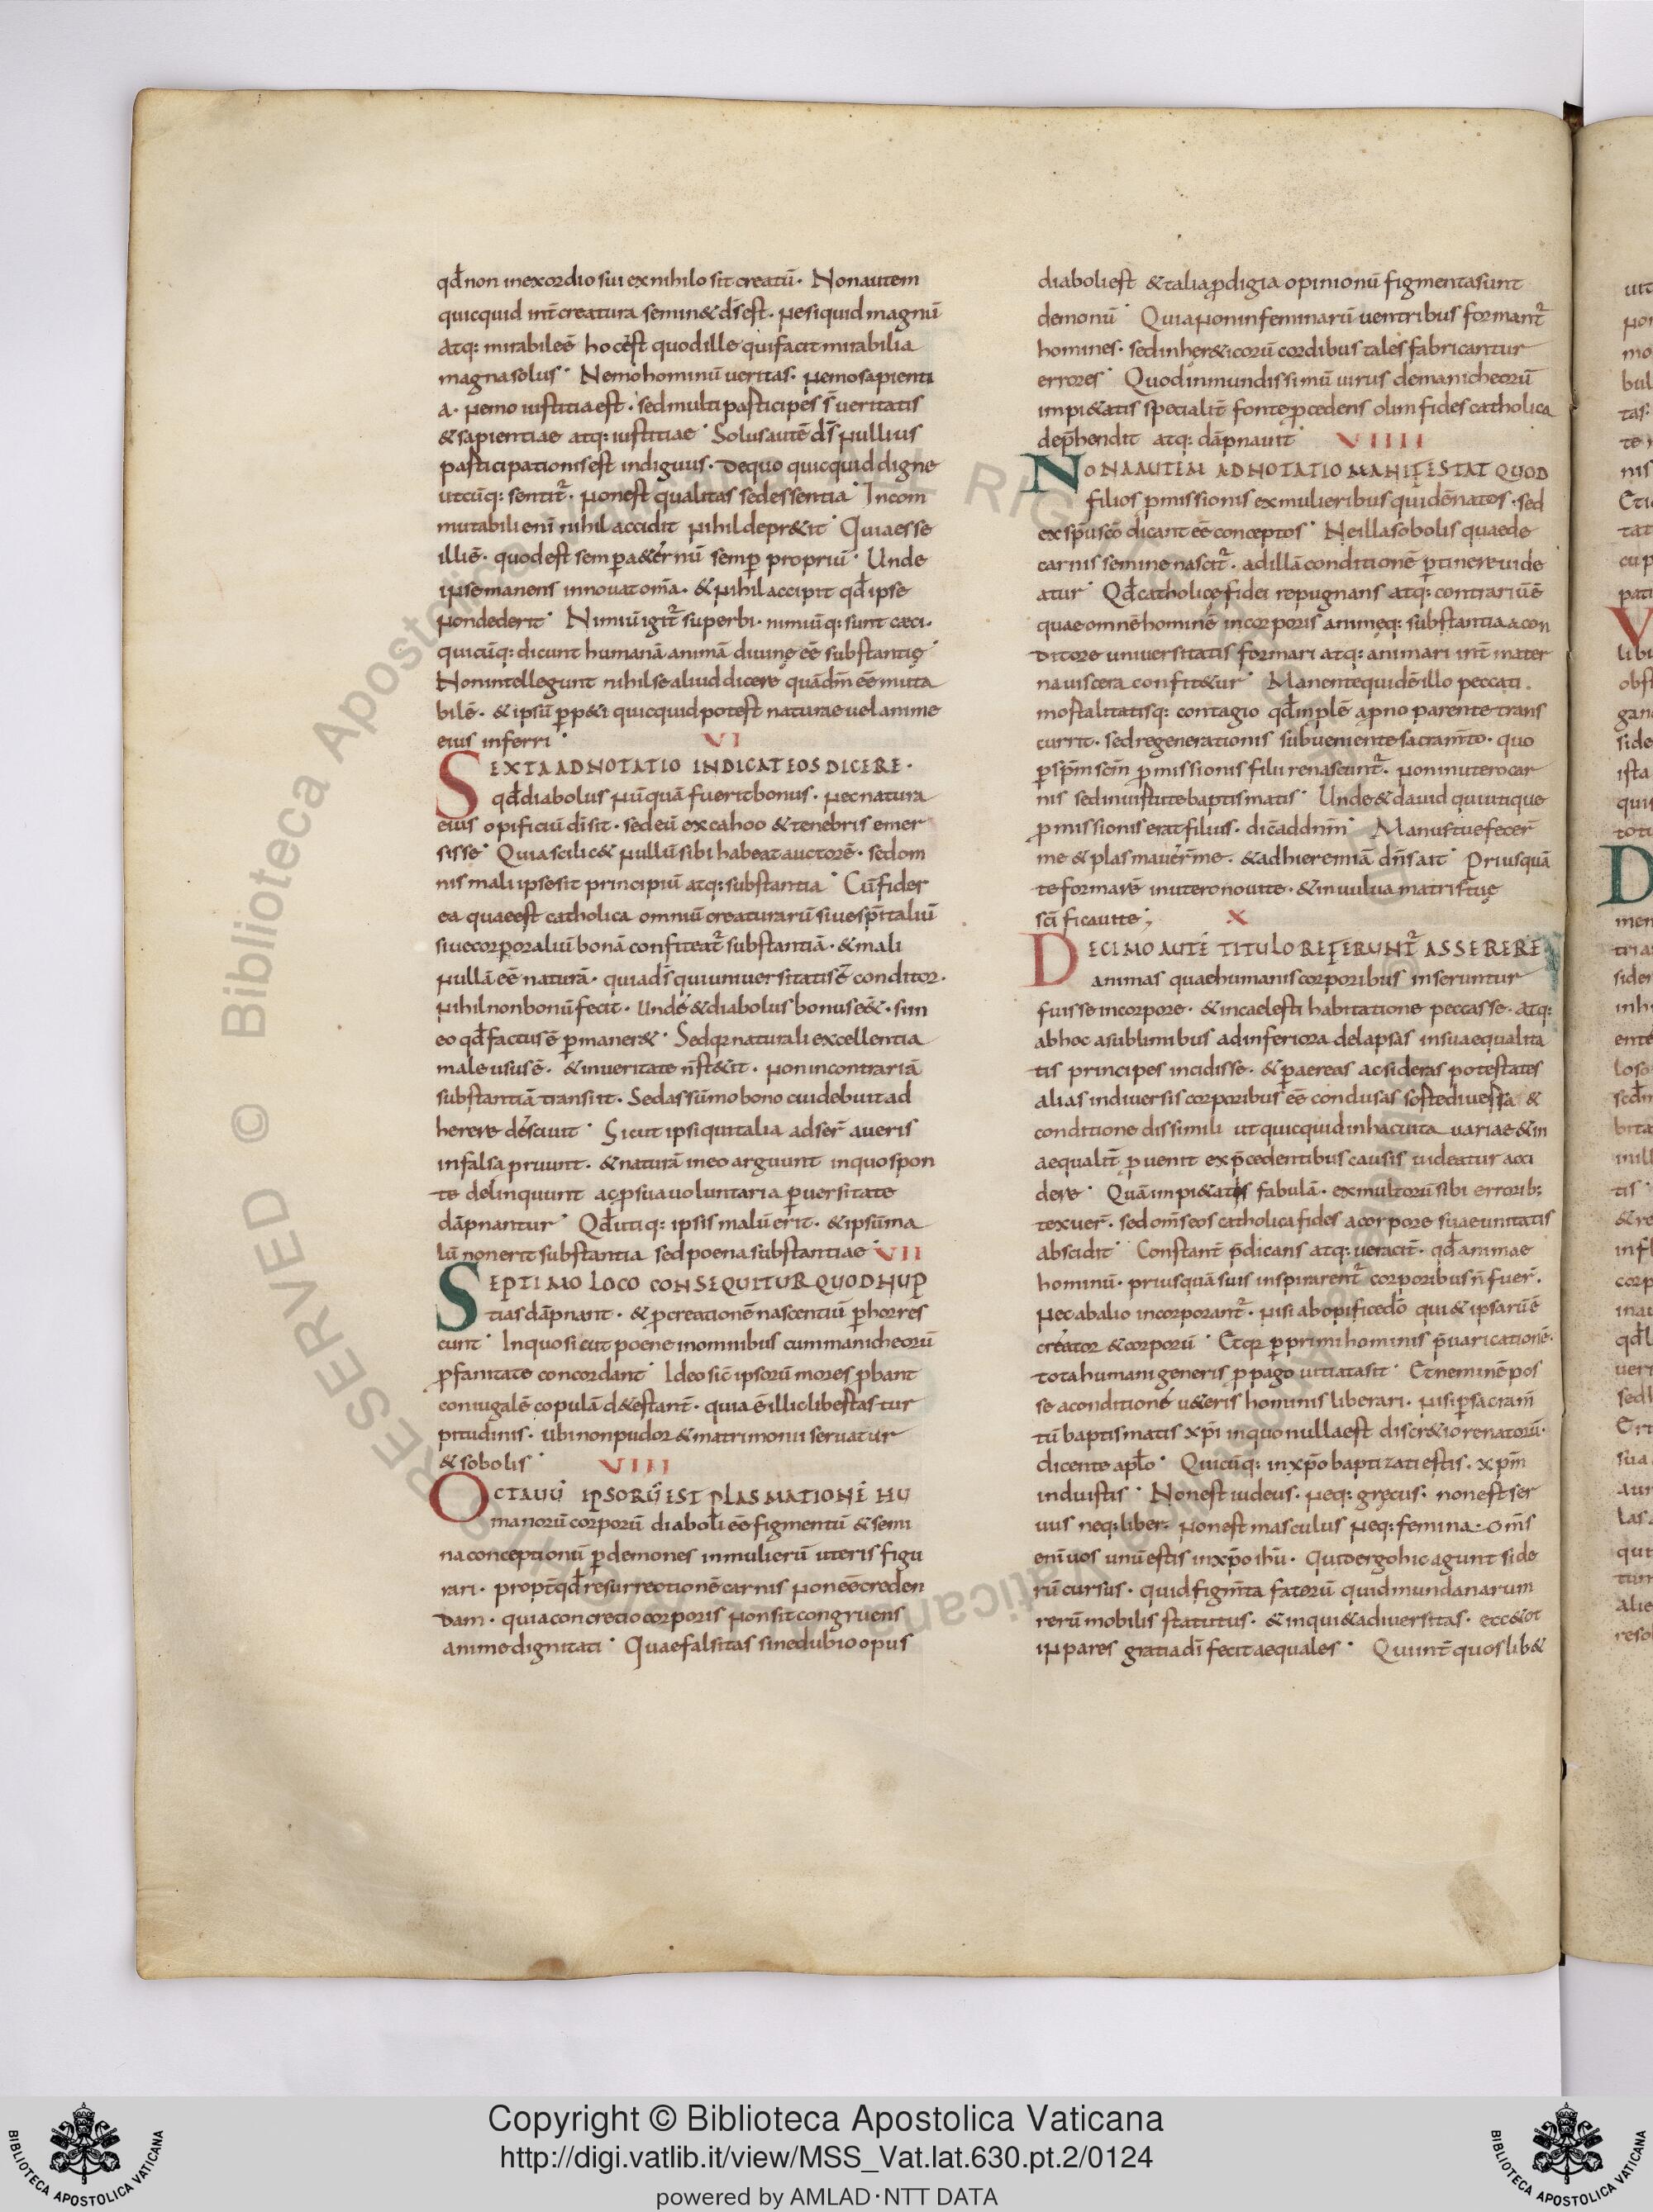 qđ non inexordio sui exnihilo sit creatū· Nonautem
quicquid int̄ creatura semin& d̄s est· Nesiquid magnū
atq: mirabileē hocēst quodille quifacit mirabilia
magnasolus· Nemohominū ueritas· Nemosapienti
a· Nemo iustitiaest· sedmulti participes s̄ ueritatis
&sapientiae atq: iustitiae· Solusautē d̄s Nullius
participationisest indiguus· Dequo quicquid digne
utcūq: sentit̄· Nonest qualitas sedessentia· Incom
mutabili eni nihil accidit Nihil depr&it· Quiaesse
illiē· quodest semp̱ a&ernū semp̱ propriū· Unde
ipsemanens innouat om̄a· &Nihil accipit qđ ipse
Nondederit· Nimiū igit̄ superbi· nimiūq: sunt caeci·
quicūq: dicunt humanā animā diuinę eē substantię·
Nonintellegunt nihilse aliud dicere quād̄m eē muta
bilē· &ipsū p̱p&i quicquidpotest naturae uel anime
eius inferri· VI
SEXTA ADNOTATIO INDICAT EOS DICERE·
qđ diabolus Nūquā fuerit bonus· Necnatura
eius opificiū d̄i sit· sedeū excahoo &tenebris emer
sisse· Quia scilic& Nullū sibi habeat auctorē· sedom
nis mali ipsesit principiū atq: substantia· Cū fides
ea quaeest catholica omniū creaturarū siuesp̄italiū
siuecorporaliū bonā confiteat̄ substantiā· &mali
Nullā eē naturā· quiad̄s quiuniuersitatisē conditor·
Nihilnonbonū fecit· Unde &diabolus bonusēē&· siin
eo qđ factusē p̱maner&· Sedqr naturali excellentia
male ususē· &inueritate n̄st&it· Nonincontrariā
substantiā transiit· Sedassūmobono cuidebuit ad
herere desciuit· Sicut ipsi quitalia adser̄ aueris
infalsa pruunt· &naturā ineo arguunt inquo spon
te delinquunt acp̱suauoluntaria p̱uersitate
dāpnantur· Qđ utiq: ipsis malū erit· &ipsūma
lū nonerit substantia sedpoena substantiae· VII
SEPTIMO LOCO CONSEQUITUR QUOD NUP
tias dāpnant· &pcreationē nascentiū p̱horres
cunt· Inquo sicut poene inomnibus cummanicheorū
pfanitate concordant· Ideo sic̄ ipsorū mores pbant
coniugalē copulā d&estant̄· quia ē illic libertas tur
pitudinis· ubinonpudor &matrimonii seruatur
&sobolis· VIII
OCTAUŪ IPSORŪ EST PLASMATIONĒ HU
manorū corporū diaboli eē figmentū &semi
na conceptionū p̱demones inmulierū uteris figu
rari· propt̄ qđ resurrectionē carnis Non eē creden
dam· quia concretio corporis Nonsit congruens
anime dignitati· Quaefalsitas sinedubio opus
diaboliest &talia pdigia opinionū figmenta sunt
demonū· Quia Noninfeminarū uentribus formant̄
homines· sedinher&icorū cordibus tales fabricantur
errores· Quod inmundissimū uirus demanicheorū
impi&atis specialit̄ fonte pcedens olim fides catholica
dep̄hendit atq: dāpnauit· VIIII
NONA AUTEM ADNOTATIO MANIFESTAT QUOD
filios pmissionis exmulieribus quidē natos· sed
exsp̄usc̄o dicant eē conceptos· Neilla sobolis quaede
carnis semine nascit̄· adillā conditionē p̱tinereuide
atur· Qđ catholicę fidei repugnans atq: contrariūē
quae omnē hominē incorporis animęq: substantia acon
ditore uniuersitatis formari atq: animari int̄ mater
na uiscera confit&ur· Manente quidē illo peccati·
mortalitatisq: contagio qđ inplē apno parente trans
currit· sedregenerationis subueniente sacram̄to· quo
p̱sp̄m sc̄m pmissionis filii renascunt̄· Noninutero car
nis sedinuirtute baptismatis· Unde &dauid quiutique
pmissionis erat filius· dic̄ add̄nm· Manus tuę fecer̄
me &plasmauer̄me· &adhieremiā dn̄s ait· Priusquā
te formarē inutero nouite· &inuulua matris tuę
sc̄ificauite; X
DECIMO AUTĒ TITULO REFERUNT̄ ASSERERE
animas quaehumanis corporibus inseruntur
fuisse incorpore· &incaelesti habitatione peccasse· atq:
abhoc asublimibus adinferiora delapsas insuaequalita
tis principes incidisse· &p̱aereas acsideras potestates
alias indiuersis corporibus eē conclusas sorte diuersa &
conditione dissimili ut quicquid inhac uita uariae &in
aequalit̄ puenit exp̄cedentibus causis uideatur acci
dere· Quā impi&atis fabulā· exmultorū sibi errorib:
texuer̄· sed om̄seos catholica fides acorpore suae unitatis
abscidit· Constant̄ p̄dicans atq: ueracit̄· qđ animae
hominū· priusquā suis inspirarent̄ corporibus n̄ fuer̄·
Necabalio incorporant̄· Nisi abopifice do qui &ipsarūē
creator &corporū· Etqr p̱primi hominis p̄uaricationē·
tota humani generis ppago uitiata sit· Et neminē pos
se aconditione u&eris hominis liberari· Nisip̱sacram̄
tū baptismatis xp̄i inquo nulla est discr&io renatorū·
dicente aplo· Quicūq: inxp̄o baptizati estis· xp̄m
induistis· Nonest iudeus· Neq: gręcus· nonest ser
uus neq: liber· Nonest masculus Neq: femina· Om̄s
eni uos unū estis inxp̄o ihū· Quidergo hic agunt side
rū cursus· quid figm̄ta fatorū quid mundanarum
rerū mobilis statutus· &inqui&adiuersitas· ecc&ot
inpares gratia d̄i fecit aequales· Quiint̄ quoslib&
Copyright © Biblioteca Apostolica Vaticana
http://digi.vatlib.it/view/MSS_Vat.lat.630.pt.2/0124
powered by AMLAD·NTT DATA